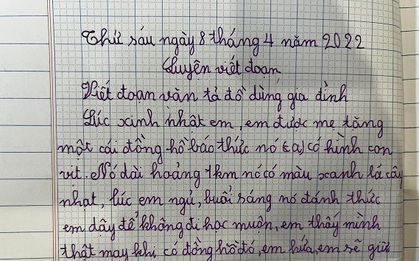 Thứ sáu ngày 8 tháng 4 năm 2022
Luyện viết đoạn
Viết đoạn văn tả đồ dùng gia đình
Lúc xinh nhật em, em được mẹ tặng
một cái đồng hồ báo thức nó (a) có hình con
vịt. Nó dài hoảng 1km nó có màu xanh lá cây
nhạt, lúc em ngủ, buổi sáng nó đánh thức
em dậy để không đi học muôn, em thấy mình
thật may khi có đồng hồ đó, em hứa, em sẽ giữ